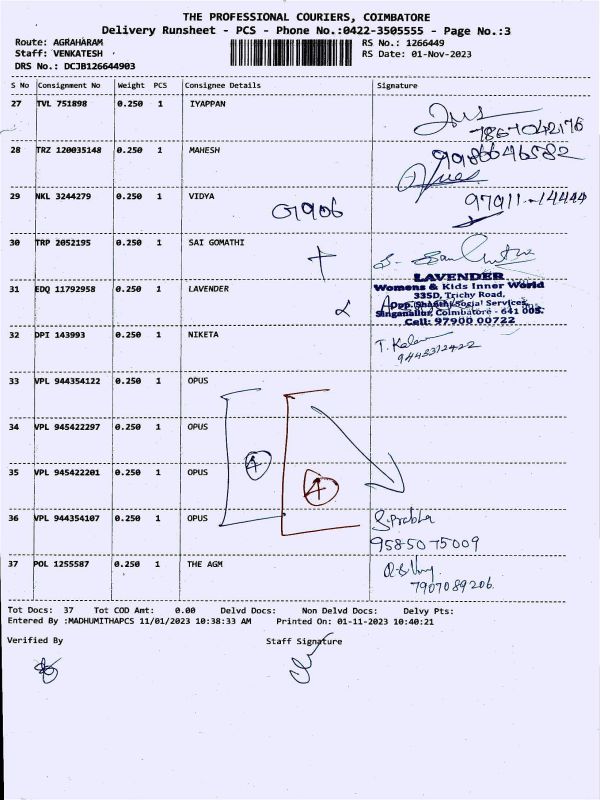 THE PROFESSIONAL COURIERS, COIMBATORE
Delivery Runsheet - PCS - Phone No.:0422-3505555 - Page No.:3
Route: AGRAHARAM RS No.: 1266449
Staff: VENKATESH RS Date: 01-Nov-2023
DRS No.: DCJB126644903
S No Consignment No Weight PCS Consignee Details Signature
27 TVL 751898 0.250 1 IYAPPAN
7867042176
28 TRZ 120035148 0.250 1 MAHESH 9986646582
29 NKL 3244279 0.250 1 VIDYA 97911-14444
G906
30 TRP 2052195 0.250 1 SAI GOMATHI
LAVENDER
Womens & Kids Inner World
31 EDQ 11792958 0.250 1 LAVENDER 335D, Trichy Road,
Opp. Shanthi Social Services,
Singanallur, Coimbatore - 641 005.
Cell: 97900 00722
32 DPI 143993 0.250 1 NIKETA T. Kala
9443312422
33 VPL 944354122 0.250 1 OPUS
34 VPL 945422297 0.250 1 OPUS
35 VPL 945422201 0.250 1 OPUS
4 4
36 VPL 944354107 0.250 1 OPUS S. Prabha
95850 75009
37 POL 1255587 0.250 1 THE AGM
7907089206
Tot Docs: 37 Tot COD Amt: 0.00 Delvd Docs: Non Delvd Docs: Delvy Pts:
Entered By :MADHUMITHAPCS 11/01/2023 10:38:33 AM Printed On: 01-11-2023 10:40:21
Verified By Staff Signature